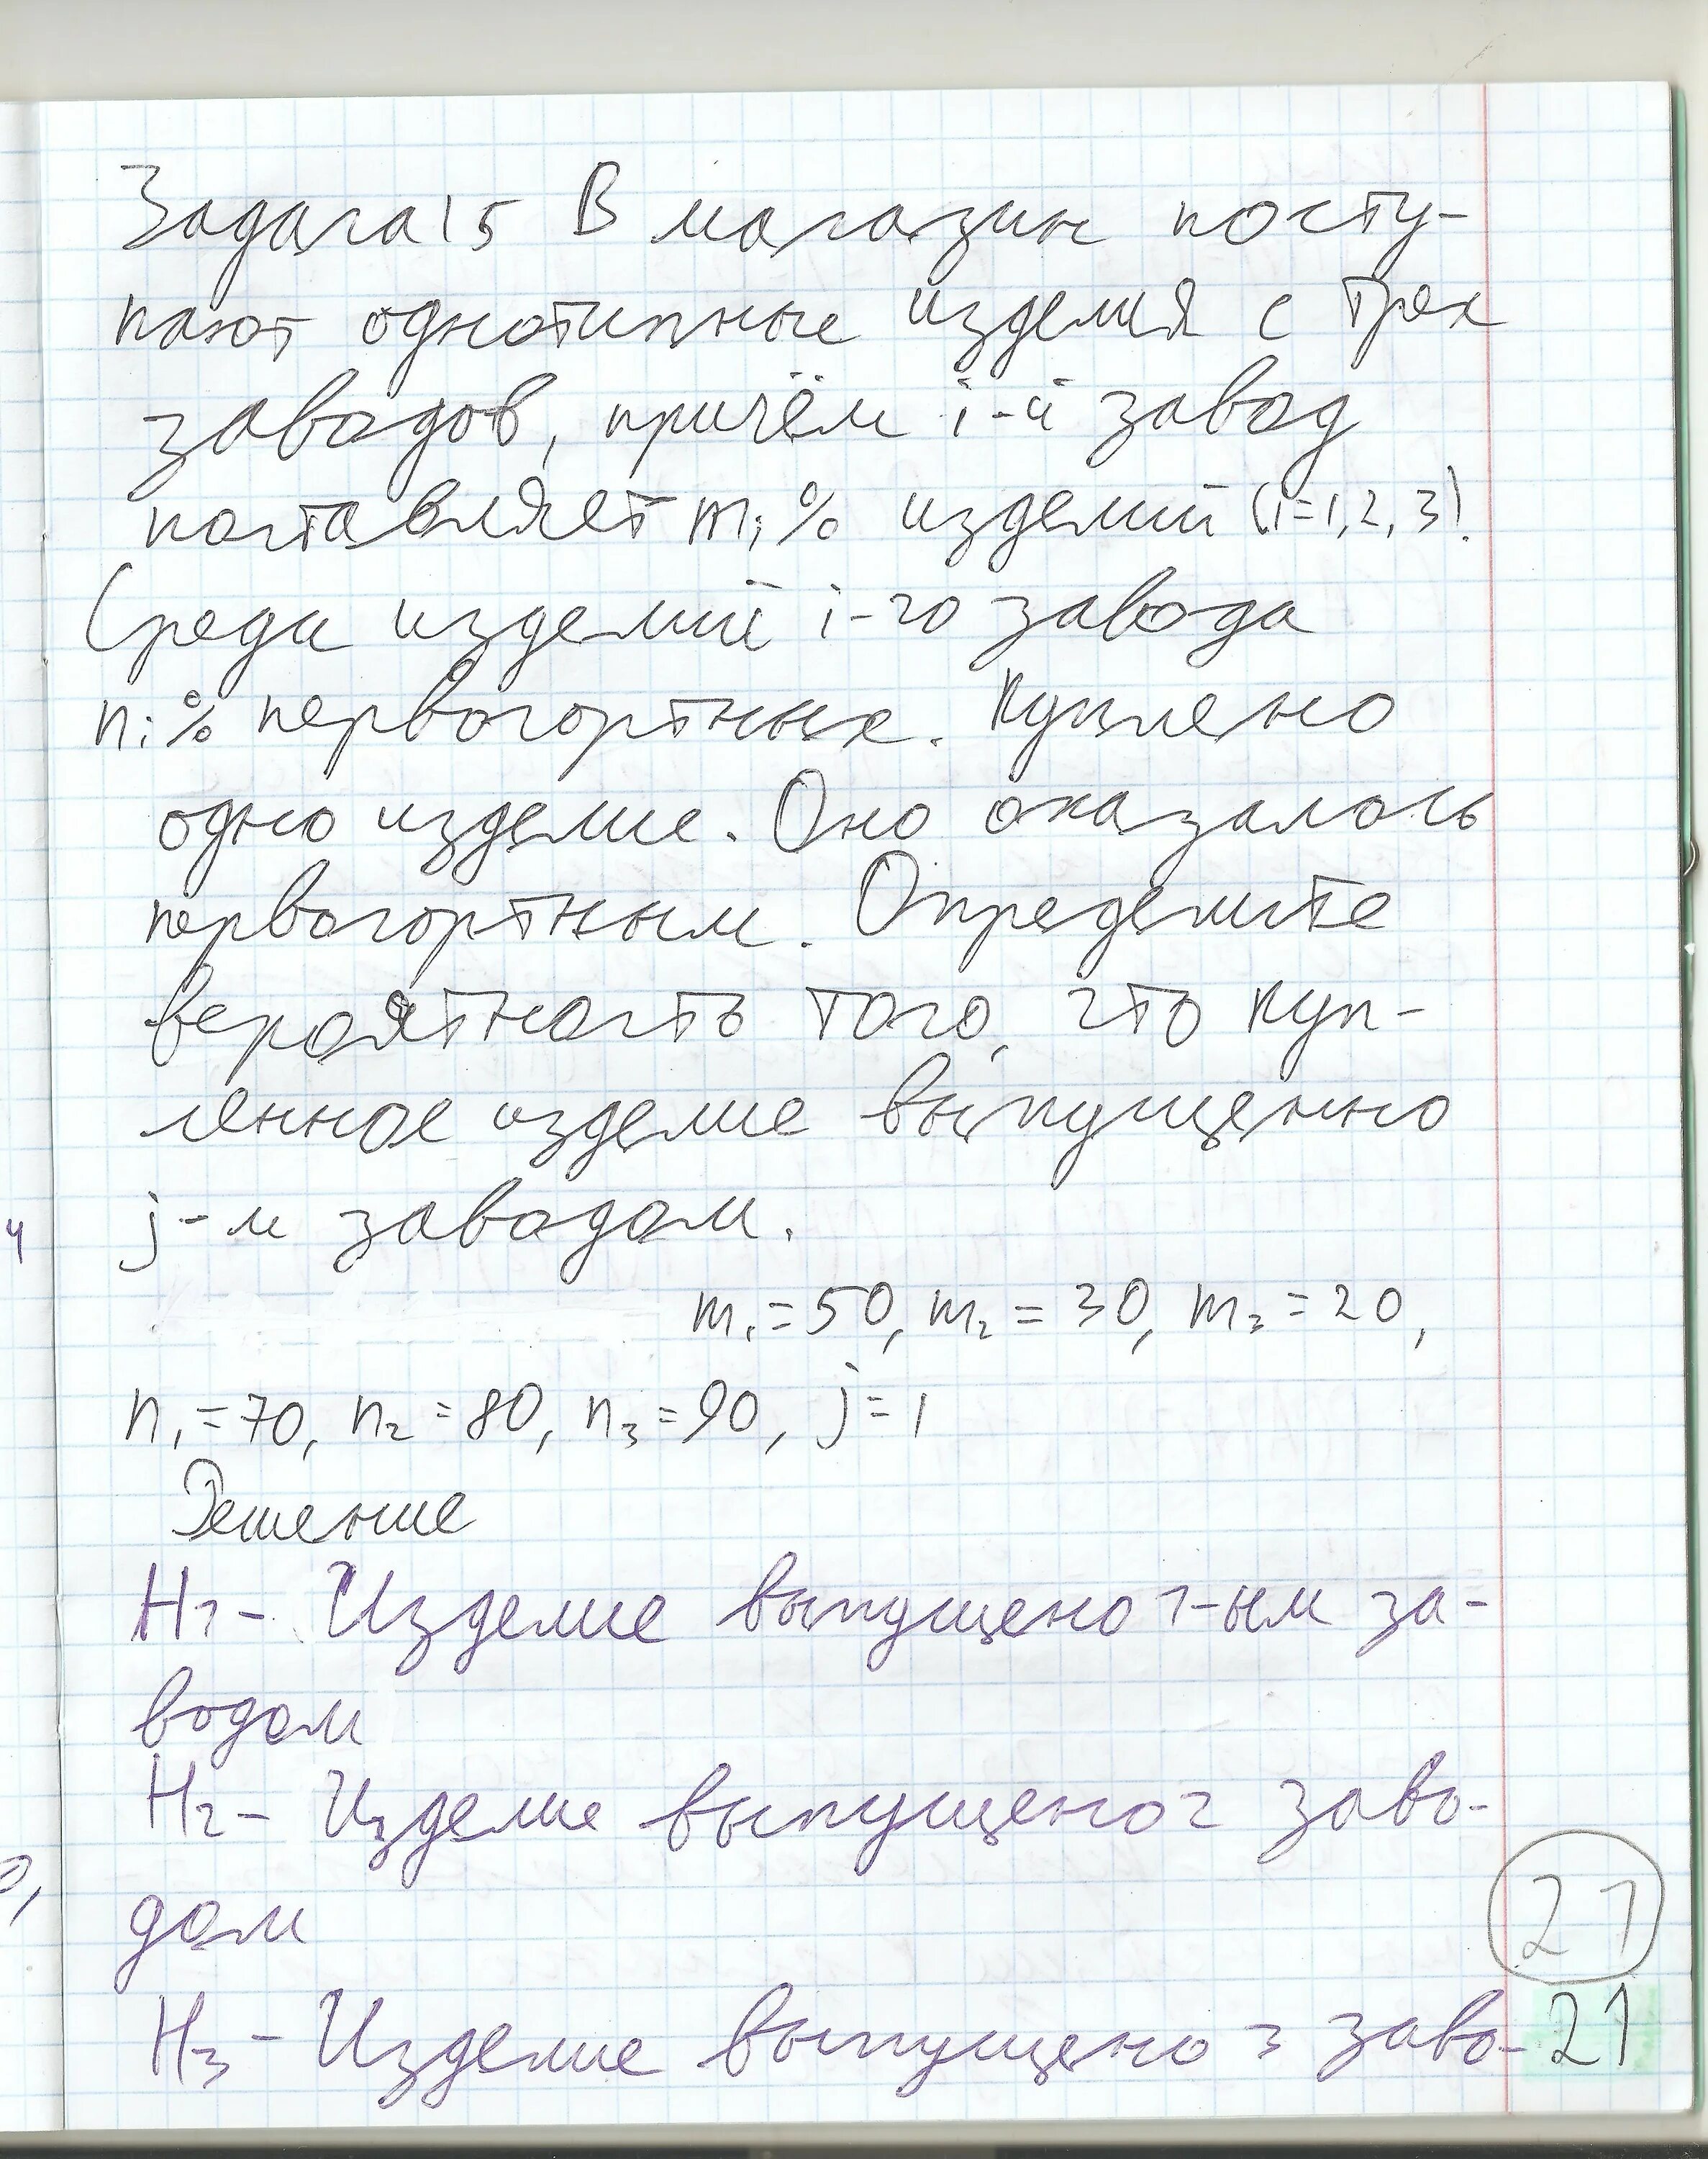 Задача 15 В магазин посту-
пают однотипные изделия с трех
заводов, причём i-й завод
поставляет m i % изделий (i=1,2,3).
Среди изделий i-го завода
n i % первосортных. Куплено
одно изделие. Оно оказалось
первосортным. Определите
вероятность того, что куп-
ленное изделие выпущенно
j-м заводом.
m₁=50, m₂=30, m₃=20,
n₁=70, n₂=80, n₃=90, j=1
Решение
H₁- Изделие выпущено 1-ым за-
водом
H₂- Изделие выпущено 2 заво-
дом
21
H₃- Изделие выпущено 3 заво-
21